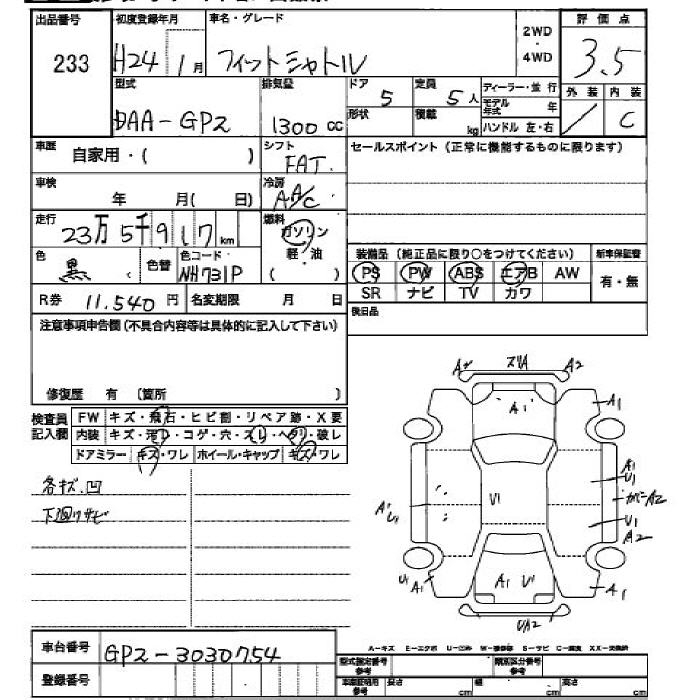 出品番号 初度登録年月 車名・グレード 2WD・4WD 評価点
233 H24 1月 フィットシャトル 3.5
型式 排気量 ドア 5 定員 5人 ディーラー・並行 外装 内装
形状 積載 kg モデル年式 年
DAA-GP2 1300cc ハンドル 左・右 / C
車歴 自家用・( ) シフト FAT セールスポイント(正常に機能するものに限ります)
車検 年 月( 日) 冷房 AA/C
走行 23万5千917km 燃料 ガソリン
軽・油
( )
装備品(純正品に限り○をつけてください) 新車保証書
色 黒 色替 色コード NH731P
PS PW ABS エアB AW 有・無
SR ナビ TV カワ
R券 11.540円 名変期限 月 日 後日品
注意事項申告欄(不具合内容等は具体的に記入して下さい)
修復歴 有 〔箇所 〕
検査員記入欄 FW キズ・飛石・ヒビ割・リペア跡・X要
内装 キズ・汚レ・コゲ・穴・スレ・ヘタリ・破レ
ドアミラー キズ・ワレ ホイール・キャップ キズ・ワレ
各キズ.凹
下廻りサビ
A2 ズレA A2
A1 A1
A1
U1
A1
U1
U1
カバーA2
U1
A2
U1
A1
A1 U1
A1
UA2
A-キズ E-エクボ U-凹み W-補修跡 S-サビ C-腐食 XX-交換済
車台番号 GP2-3030754
登録番号
型式指定番号 参考 類別区分番号 参考
車庫証明用 参考 長さ cm 幅 cm 高さ cm